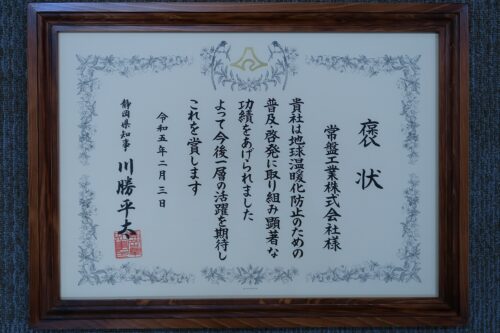 褒状
常盤工業株式会社様
貴社は地球温暖化防止のための
普及・啓発に取り組み顕著な
功績をあげられました
よって今後一層の活躍を期待し
これを賞します
令和五年二月三日
静岡県知事 川勝平太